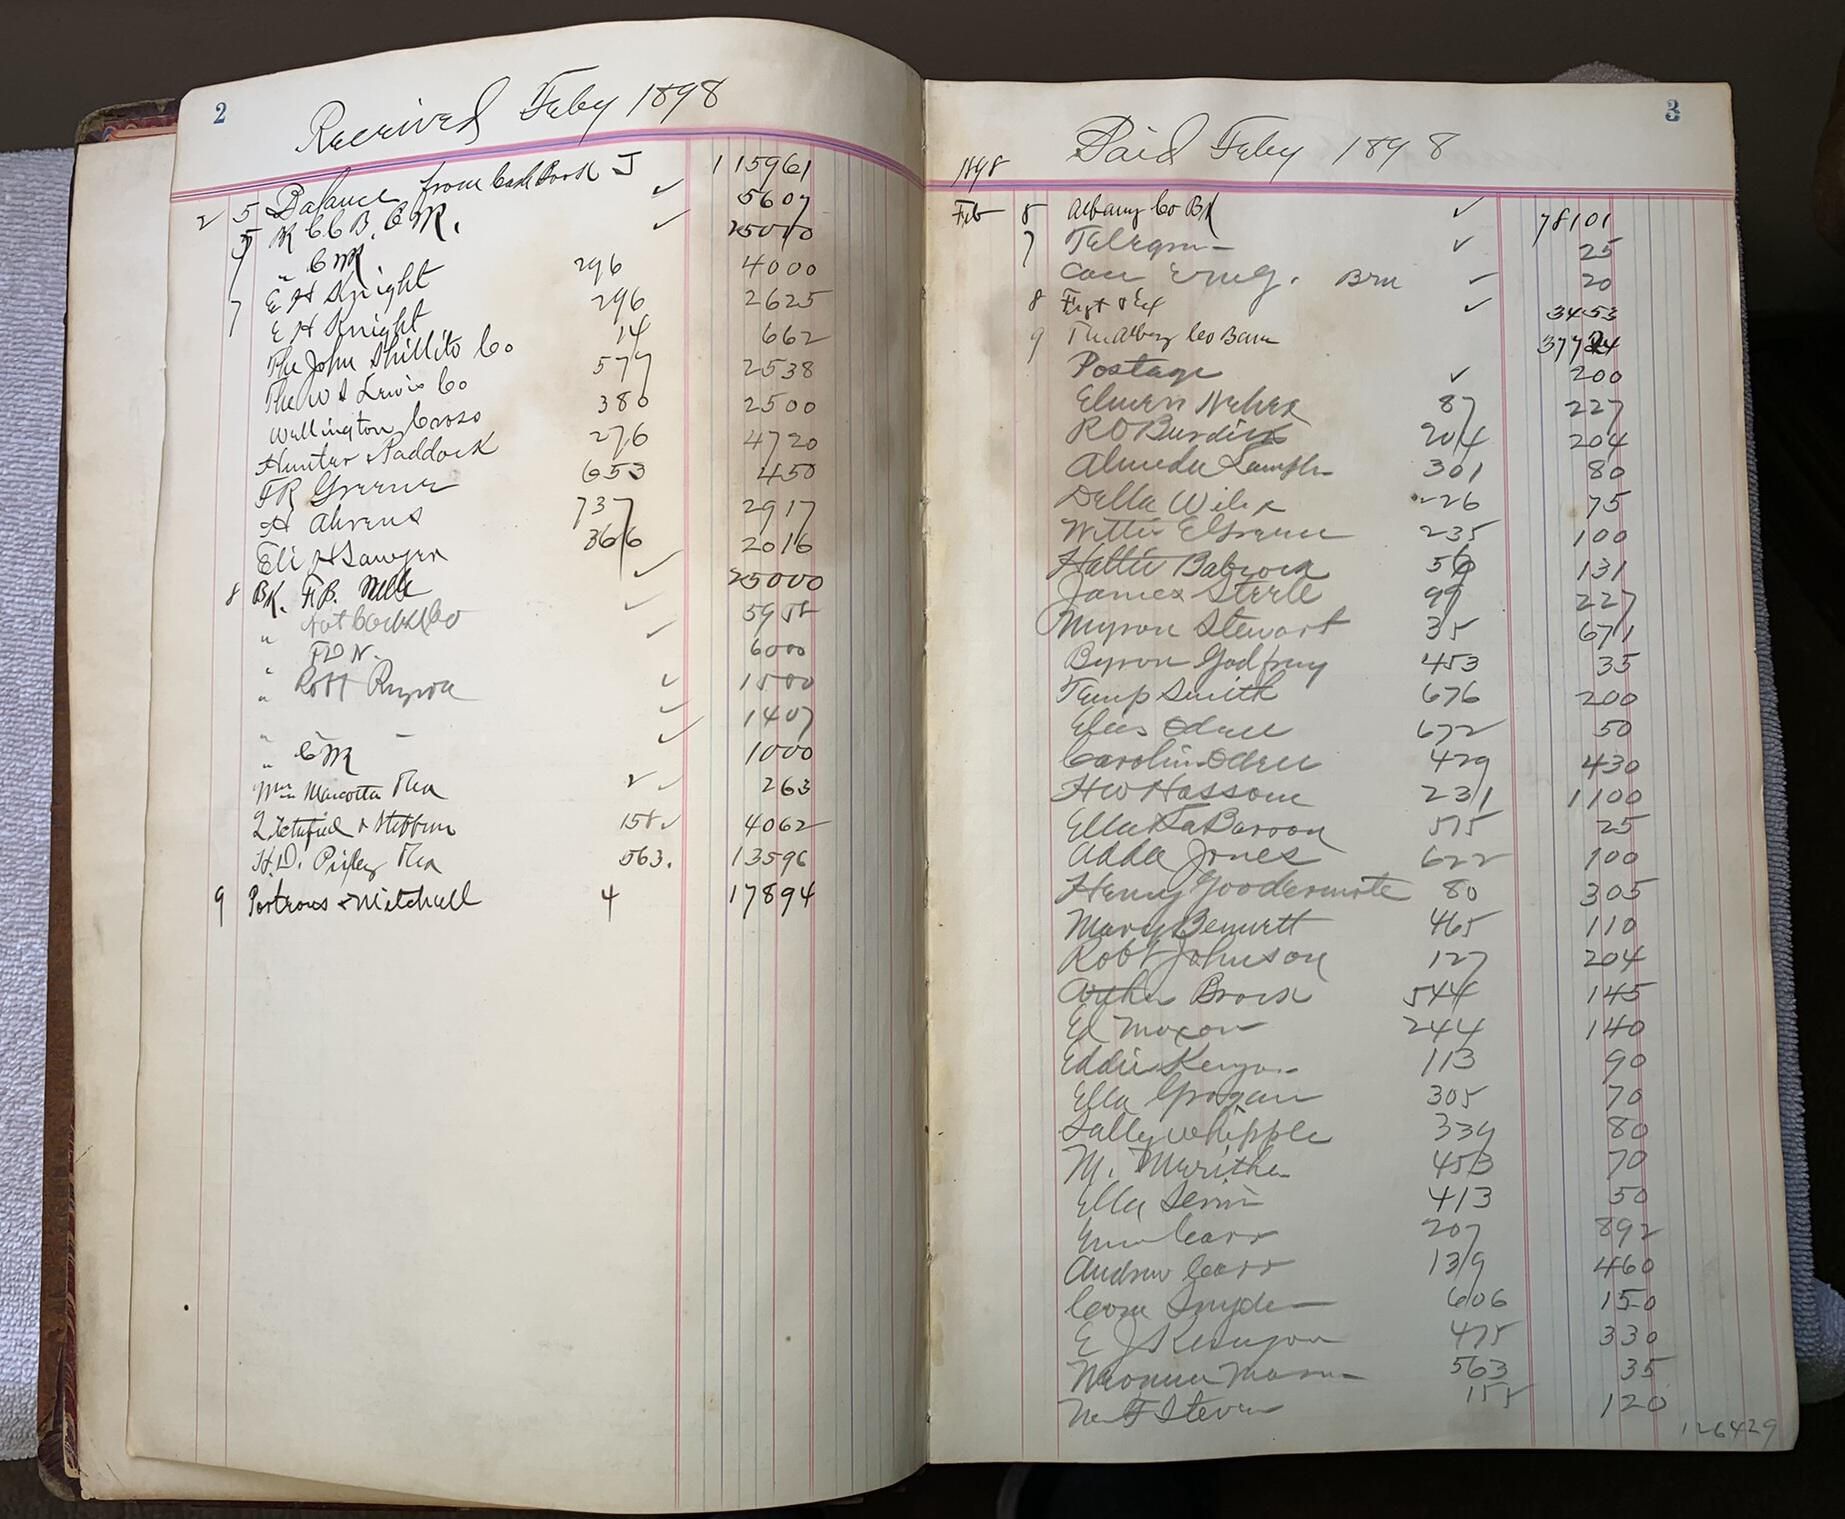 2
Received Feby 1898
2 5 Balance from Cash Book J 115961
5 BK C C B. C M. ✓ 5607
7 " C M ✓ 25000
E H Knight 296 4000
7 E H Knight 296 2625
The John Shillito Co 14 662
The W S Lewis Co 577 2538
Wellington Cross 380 2500
Hunter & Paddock 276 4720
F R Greene 653 450
H Ahrens 737 2917
Eli H Sawyer 366 2016
8 BK. F.B. ✓ 25000
" Nat ✓ 5958
" F D N. ✓ 6000
" Robt ✓ 1500
✓ 1407
" C M ✓ 1000
2 ✓ 263
Litchfield & Stebbins 158 ✓ 4062
H.D. 563. 13596
9 Porteous & Mitchell 4 17894
3
Paid Feby 1898
1898
Feb 8 Albany Co BK ✓ 78101
7 Telegm ✓ 25
✓ 20
8 Frgt & Ex ✓ 3453
9 The Albany Co Bank
Postage ✓ 200
Elmer 87 227
R O Burdick 204 204
Almeda 301 80
Della Wilcx 26 75
E Greene 235 100
Hattie Babcock 56 131
James Steele 99 227
Myron Stewart 35 671
Byron Godfrey 453 35
Temp Smith 676 200
Odell 672 50
Carolin Odell 429 430
H W Hassom 231 1100
Ella LaBaroon 575 25
Adda Jones 622 100
Henry Goodermote 80 305
Mary Bennett 465 110
Robt Johnson 127 204
Arthur Brock 544 145
Ed Moxon 244 140
Eddie Kenyon 113 90
Ella Grogan 305 70
Sally Whipple 334 80
M. 453 70
Ella 413 50
Carr 207 892
Andrew Carr 139 460
Cora Snyder 606 150
E J Kenyon 475 330
563 35
F Steven 155 120
126429